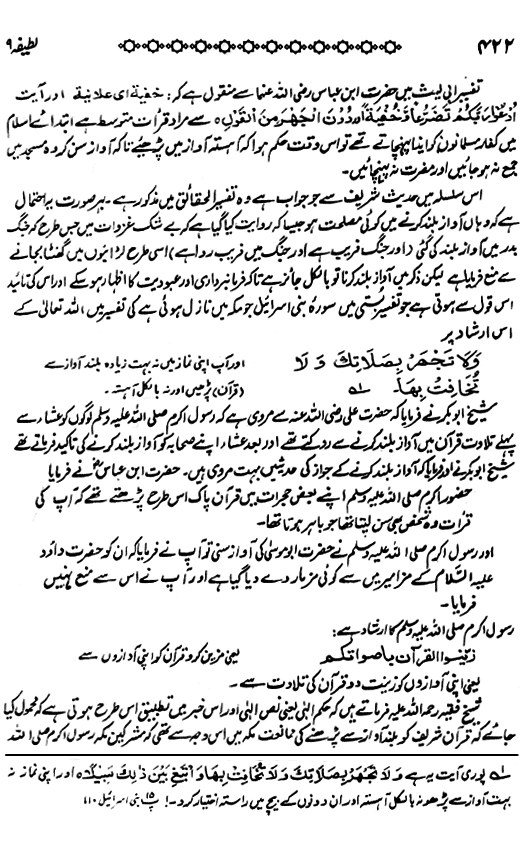 ۴۲۲ لطیفہ ۹
تفسیر ابی لیث میں حضرت ابن عباس رضی اللہ عنہما سے منقول ہے کہ: خفیۃ ای علانیۃ اور آیت
اُدْعُوْا رَبَّكُمْ تَضَرُّعًا وَّخُفْيَةً اور دُونَ الْجَهْرِ مِنَ الْقَوْلِ سے مراد قرأت متوسط ہے ابتدائے اسلام
میں کفار مسلمانوں کو ایذا پہنچاتے تھے تو اس وقت حکم ہوا کہ آہستہ آواز میں پڑھیئے تاکہ آواز سن کر وہ مسجد میں
جمع نہ ہو جائیں اور مضرت نہ پہنچائیں۔
اس سلسلہ میں حدیث شریف سے جو جواب ہے وہ تفسیر الحقائق میں مذکور ہے۔ بہر صورت یہ احتمال
ہے کہ وہاں آواز بلند کرنے میں کوئی مصلحت ہو جیسا کہ روایت کیا گیا ہے کہ بے شک غزوات میں جس طرح کہ جنگ
بدر میں آواز بلند کی گئی (اور جنگ فریب ہے اور جنگ میں فریب روا ہے) اسی طرح لڑائیوں میں گھنٹا بجانے
سے منع فرمایا ہے لیکن ذکر میں آواز بلند کرنا تو بالکل جائز ہے تاکہ فرمانبرداری اور عبودیت کا اظہار ہو سکے اور اس کی تائید
اس قول سے ہوتی ہے جو تفسیر بستی میں سورۂ بنی اسرائیل جو مکہ میں نازل ہوئی ہے کی تفسیر میں، اللہ تعالیٰ کے
اس ارشاد پر
وَلَا تَجْهَرْ بِصَلَاتِكَ وَلَا اور آپ اپنی نماز میں نہ بہت زیادہ بلند آواز سے
تُخَافِتْ بِهَا۔ لہ (قرآن) پڑھیں اور نہ بالکل آہستہ۔
شیخ ابو بکر نے فرمایا کہ حضرت علی رضی اللہ عنہ سے مروی ہے کہ رسول اکرم صلی اللہ علیہ وسلم لوگوں کو عشاء سے
پہلے تلاوت قرآن میں آواز بلند کرنے سے روکتے تھے اور بعد عشاء اپنے صحابہ کو آواز بلند کرنے کی تاکید فرماتے تھے
شیخ ابو بکر نے اور فرمایا کہ آواز بلند کرنے کے جواز کی حدیثیں بہت مروی ہیں۔ حضرت ابن عباس نے فرمایا
حضور اکرم صلی اللہ علیہ وسلم اپنے بعض حجرات میں قرآن پاک اس طرح پڑھتے تھے کہ آپ کی
قرأت وہ شخص بھی سن لیتا تھا جو باہر ہوتا تھا۔
اور رسول اکرم صلی اللہ علیہ وسلم نے حضرت ابو موسیٰ کی آواز سنی تو آپ نے فرمایا کہ ان کو حضرت داؤد
علیہ السلام کے مزامیر میں سے کوئی مزمار دے دیا گیا ہے اور آپ نے اس سے منع نہیں
فرمایا۔
رسول اکرم صلی اللہ علیہ وسلم کا ارشاد ہے:
زینوا القرآن باصواتکم یعنی مزین کرو قرآن کو اپنی آوازوں سے
یعنی اپنی آوازوں کو زینت دو قرآن کی تلاوت سے۔
شیخ فقیہ رحمۃ اللہ علیہ فرماتے ہیں کہ حکم الٰہی یعنی نص الٰہی اور اس خبر میں تطبیق اس طرح ہوتی ہے کہ محمول کیا
جائے کہ قرآن شریف کو بلند آواز سے پڑھنے کی ممانعت مکہ میں اس وجہ سے تھی کہ مشرکین مکہ رسول اکرم صلی اللہ
لہ پوری آیت یہ ہے وَلَا تَجْهَرْ بِصَلَاتِكَ وَلَا تُخَافِتْ بِهَا وَابْتَغِ بَيْنَ ذٰلِكَ سَبِيْلًا ہ اور اپنی نماز نہ
بہت آواز سے پڑھو نہ بالکل آہستہ اور ان دونوں کے بیچ میں راستہ اختیار کرو۔! پ ۱۵ بنی اسرائیل ۱۱۰